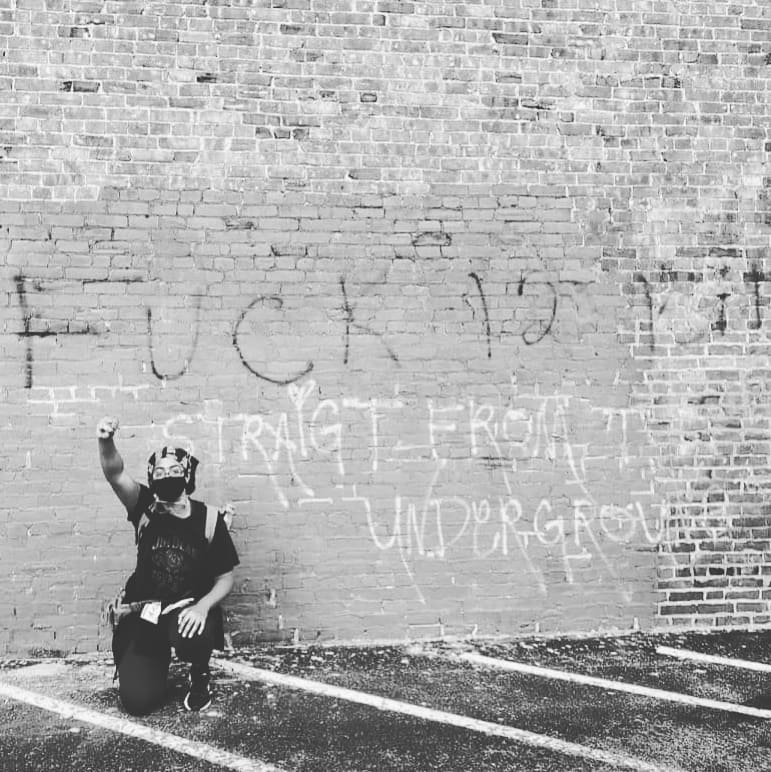 FUCK 12
STRAIGT FROM
UNDERGROU